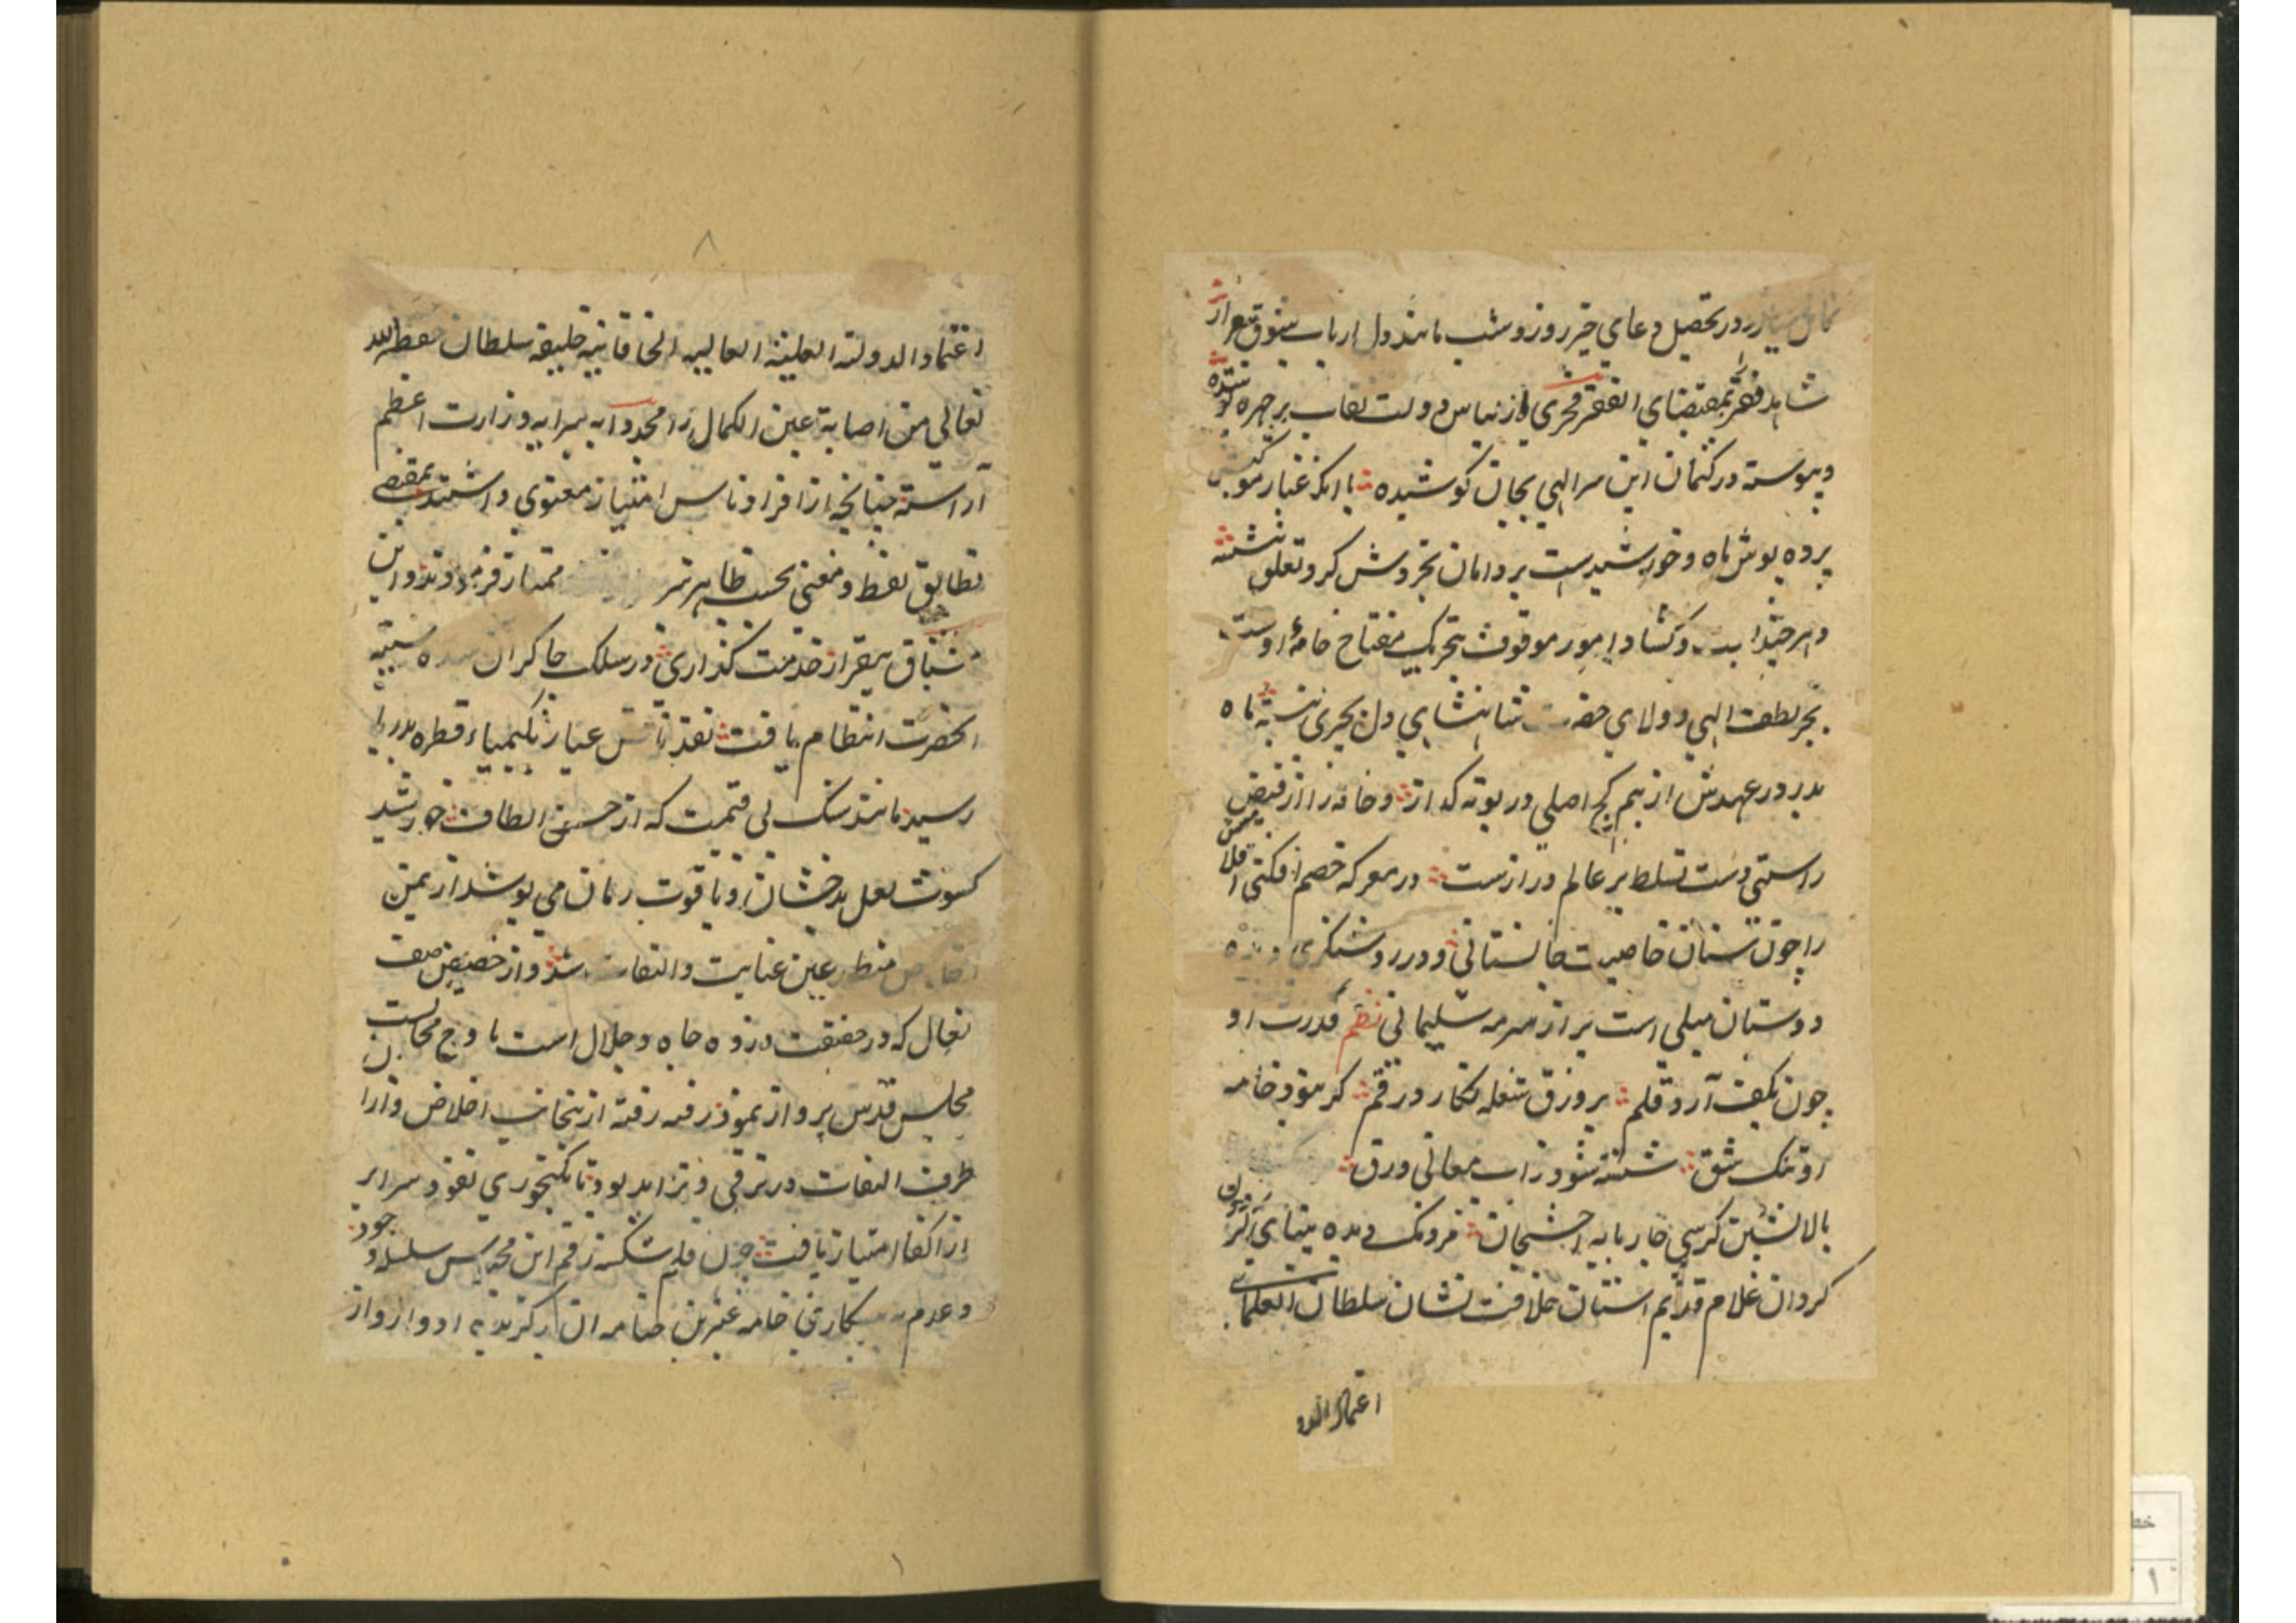 در تحصیل دعای خیر روز و شب مانند دل ارباب
شاهد فقر را بمقتضای الفقر فخری از لباس دولت نقاب بر چهره
و پیوسته در کتمان این سر الهی بجان کوشیده با آنکه غبار موکبش
پرده پوش ماه و خورشیدست بر دامان تجردش گرد تعلق ننشسته
و هر چند و کشاد امور موقوف بتحریک مفتاح خامهٔ اوست
بجز لطف الهی و ولای شاهنشاهی دل بچیزی نبسته ماه
بدر در عهدش از بیم کج اصلی در بوته گداز و خامه را از فیض
راستی دست تسلط بر عالم درازست در معرکه خصم افکنی
را چون سنان خاصیت جانستانی و در روشنگری
دوستان میلی است پر از سرمه سلیمانی نظم قدرت او
چون بکف آرد قلم بر ورق شعله نگارد رقم گر بود خامه
او تنک شق شسته شود ز آب معانی ورق
بالانشین کرسی چار پایه فروغ دیده بینای
گردان غلام قدیم آستان خلافت نشان سلطان العلمای
اعتماد الدو
۸
اعتماد الدولة العلیة العالیة الخاقانیة خلیفه سلطان حفظه الله
تعالی من اصابة عین الکمال را مجددا به پیرایه وزارت اعظم
آراسته چنانچه از افراد ناس امتیاز معنوی داشتند بمقتضی
تطابق لفظ و معنی بحسب ظاهر نیز ممتاز فرمودند و این
بیقرار خدمت گذاری در سلک چاکران سده سنیه
آنحضرت انتظام یافت نقد ناقص عیار بکیمیاء قطره
رسید مانند سنگ بی قیمت که از حسن الطاف خورشید
کسوت لعل بدخشان و یاقوت رمان می پوشد از یمن
منظور عین عنایت و التفات شد و از حضیض صف
نعال که در حقیقت ذروه جاه و جلال است باوج مجالست
مجلس قدس پرواز نمود رفته رفته از ینجانب اخلاص و از آن
طرف التفات در ترقی و تزاید بود تا بگنجوری نقود سرایر
از اکفا امتیاز یافت چون قلم شکسته رقم این سلسله وجود
و عدم خامه عنبرین
۱